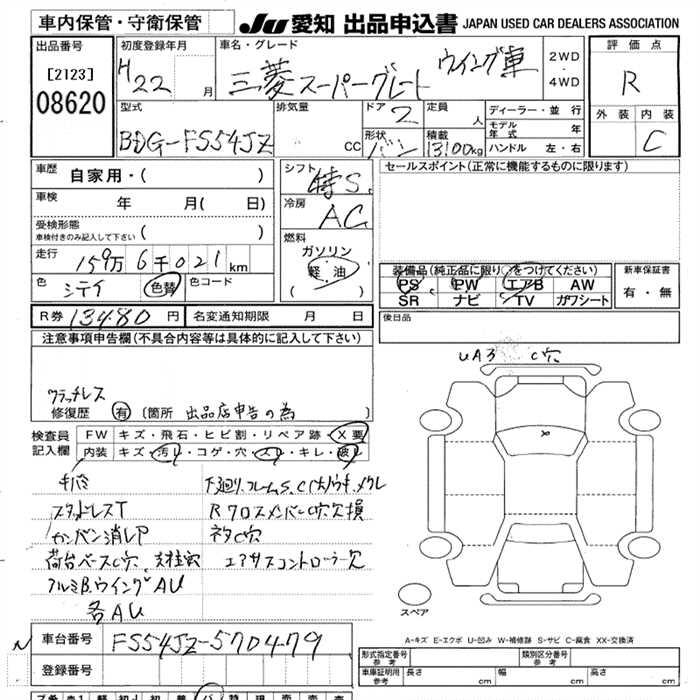 車内保管・守衛保管
JU 愛知 出品申込書 JAPAN USED CAR DEALERS ASSOCIATION
出品番号
[2123]
08620
初度登録年月
H22 月
車名・グレード
三菱 スーパーグレート ウイング車
2WD
・
4WD
評価点
R
外装 内装
C
型式
BDG-FS54JZ
排気量
CC
ドア 2
形状 バン
定員 人
積載 13100kg
ディーラー・並行
モデル年式 年
ハンドル 左・右
車歴 自家用・( )
車検 年 月( 日)
受検形態
車検付きのみ記入して下さい ( )
走行 159万6千021km
色 シテイ 色替 色コード
シフト 特S
冷房 AC
燃料
ガソリン
軽油
( )
セールスポイント(正常に機能するものに限ります)
装備品(純正品に限り○をつけてください)
PS PW エアB AW
SR ナビ TV カワシート
新車保証書
有・無
R券 13480 円 名変通知期限 月 日
後日品
注意事項申告欄(不具合内容等は具体的に記入して下さい)
クラッチレス
修復歴 有 [箇所 出品店申告の為 ]
UA3 C穴
検査員
記入欄
FW キズ・飛石・ヒビ割・リペア跡・X要
内装 キズ・汚レ・コゲ・穴・スレ・キレ・破レ
キバミ
スタッドレスT
カンバン消しア
荷台ベースC穴
アルミB.ウイングAU
各AU
R クロスメンバーC穴欠損
ネタC穴
エアサスコントローラー欠
X
スペア
A-キズ E-エクボ U-凹み W-補修跡 S-サビ C-腐食 XX-交換済
車台番号 FS54JZ-570479
登録番号
形式指定番号
参考
類別区分番号
参考
車庫証明用
参考
長さ cm 幅 cm 高さ cm